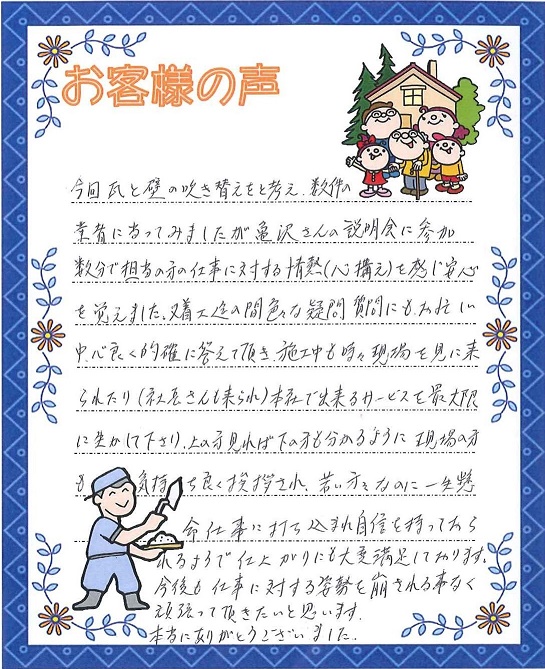 お客様の声
今回瓦と壁の吹き替えをと考え、数件の
業者に当ってみましたが亀沢さんの説明会に参加
数分で担当の方の仕事に対する情熱(心構え)を感じ安心
を覚えました、又着工迄の間色々な疑問質問にも
中、心良く的確に答えて頂き、施工中も時々現場を見に来
られたり(社長さんも来られ)本社で出来るサービスを最大限
に生かして下さり、上の方見れば下の方も分かるように現場の方
も気持ち良く挨拶され、若い方々なのに一生懸
命仕事に打ち込まれ自信を持っておら
れるようで仕上がりにも大変満足しております。
今後も仕事に対する姿勢を崩される事なく
頑張って頂きたいと思います。
本当にありがとうございました。